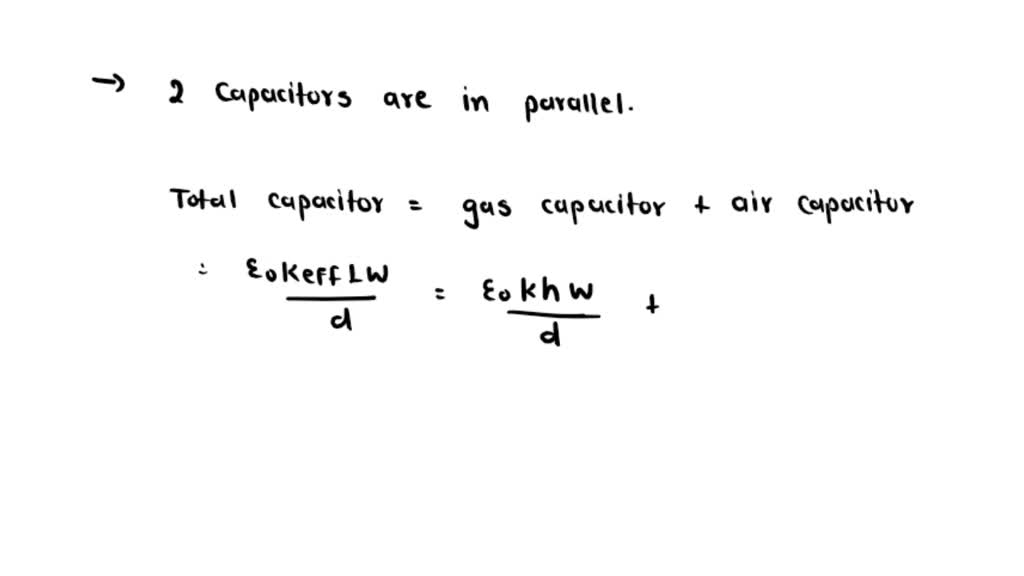 → 2 Capacitors are in parallel.
Total capacitor = gas capacitor + air capacitor
= ε₀ keff LW / d = ε₀ k h w / d +